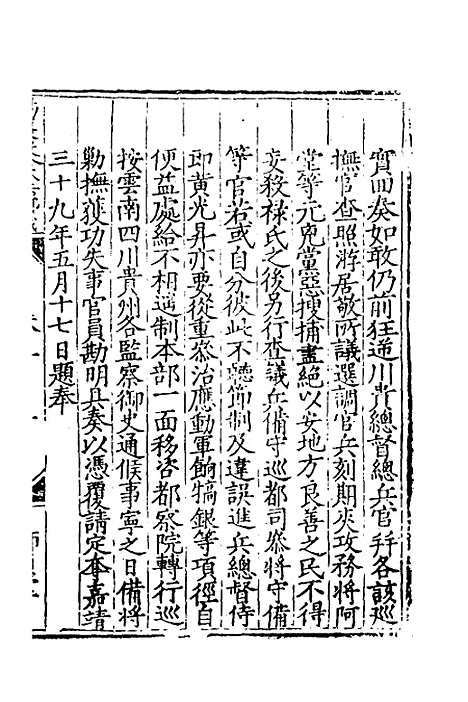 實回奏如敢仍前狂逆川貴總督總兵官并各該巡
撫官查照游居敬所議選調官兵刻期夾攻務將阿
堂等元兇黨惡搜捕盡絕以安地方良善之民不得
妄殺祿氏之後另行查議兵備守巡都司參將守備
等官若或自分彼此不聽節制及違誤進兵總督侍
郎黃光昇亦要從重參治應動軍餉犒銀等項徑自
便益處給不相遙制本部一面移咨都察院轉行巡
按雲南四川貴州各監察御史通候事寧之日備將
勦撫獲功失事官員勘明具奏以憑覆請定奪嘉靖
三十九年五月十七日題奉